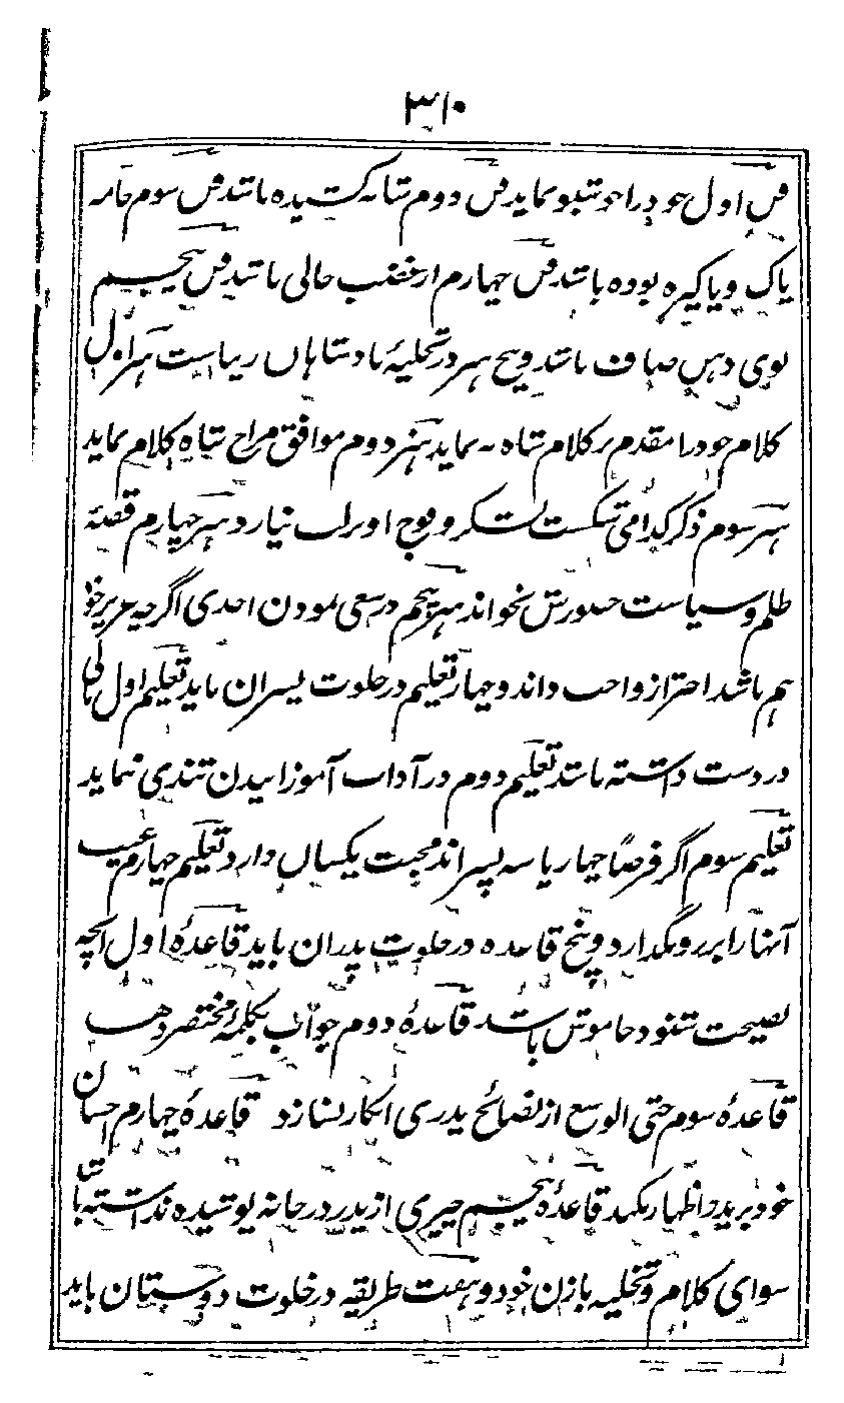 ۳۱۰
فن اول خود را خوشبو نماید فن دوم شانه کشیده باشد فن سوم جامه
پاک و پاکیزه بوده باشد فن چهارم از غضب خالی باشد فن پنجم
بوی دهن صاف باشد و پنج هنر در تخلیهٔ بادشاهان ریاست هنر اول
کلام خود را مقدم بر کلام شاه نه نماید هنر دوم موافق مزاج شاه کلام نماید
هنر سوم ذکر کدامی شکست لشکر و فوج او بر لب نیارد هنر چهارم قصهٔ
ظلم و سیاست حضورش نخواند هنر پنجم در سعی نمودن احدی اگرچه عزیز خود
هم باشد احتراز واجب داند و چهار تعلیم در خلوت پسران باید تعلیم اول
در دست داشته باشد تعلیم دوم در آداب آموزانیدن تندی نماید
تعلیم سوم اگر فرضاً چهار یا سه پسر اند محبت یکسان دارد تعلیم چهارم عیب
آنها را برو نگذارد و پنج قاعده در خلوت پدران باید قاعدهٔ اول آنچه
نصیحت شنود خاموش باشد قاعدهٔ دوم جواب بکلمهٔ مختصر دهد
قاعدهٔ سوم حتی الوسع از نصائح پدری انکار نسازد قاعدهٔ چهارم احسان
خود بر پدر اظهار نکند قاعدهٔ پنجم چیزی از پدر در خانه پوشیده نداشته باشد
سوای کلام و تخلیه با زن خود و هفت طریقه در خلوت دوستان باید